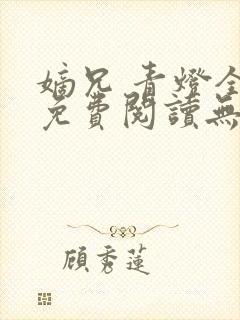 嫡兄 青燈全
免費閱讀無
顧秀蓮